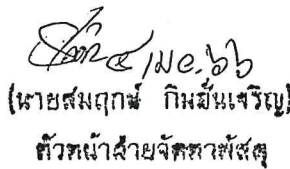 ๕ เม.ย. ๖๖
(นายสมฤกษ์ กิมยั่นเจริญ)
หัวหน้าฝ่ายจัดหาพัสดุ